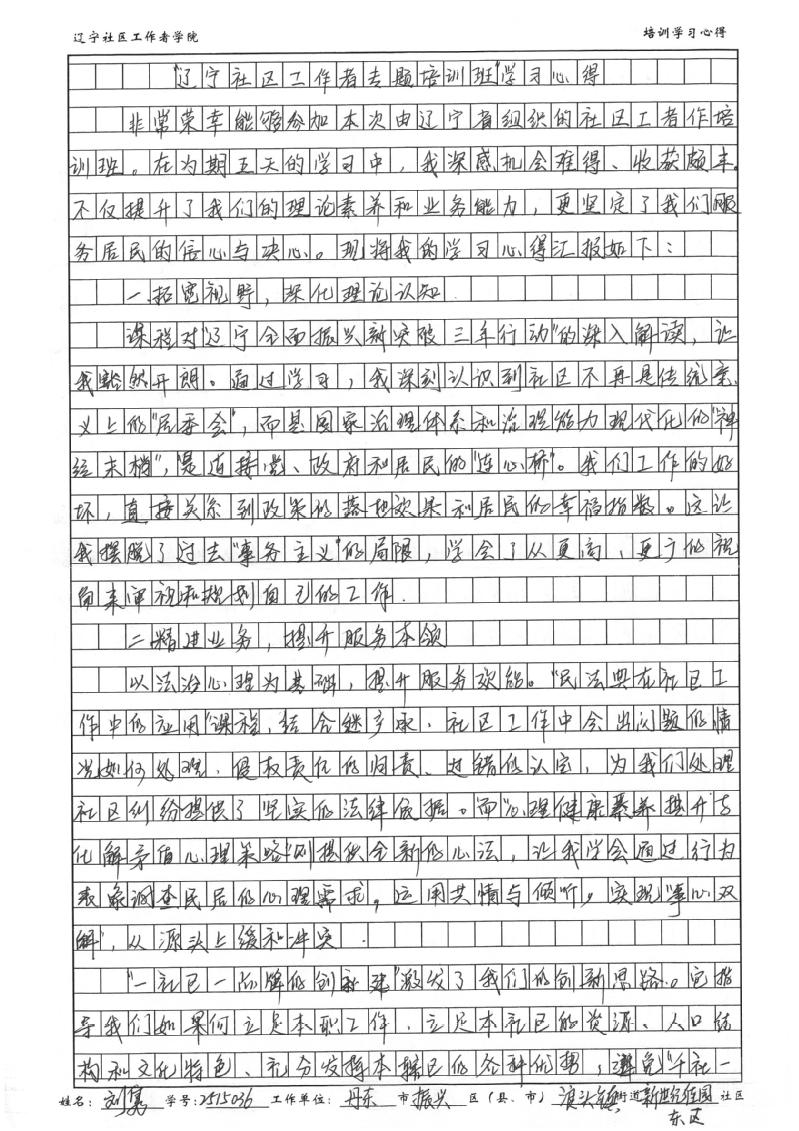 辽宁社区工作者学院 培训学习心得
"辽宁社区工作者专题培训班"学习心得
非常荣幸能够参加本次由辽宁省组织的社区工者作培
训班。在为期五天的学习中，我深感机会难得、收获颇丰。
不仅提升了我们的理论素养和业务能力，更坚定了我们服
务居民的信心与决心。现将我的学习心得汇报如下：
一.拓宽视野，深化理论认知
课程对"辽宁全面振兴新突破三年行动"的深入解读，让
我豁然开朗。通过学习，我深刻认识到社区不再是传统意
义上的"居委会"，而是国家治理体系和治理能力现代化的"神
经末梢"，是连接党、政府和居民的"连心桥"。我们工作的好
坏，直接关系到政策的落地效果和居民的幸福指数。这让
我摆脱了过去"事务主义"的局限，学会了从更高、更广的视
角来审视和规划自己的工作.
二.精进业务，提升服务本领
以法治心理为基础，提升服务效能。"民法典在社区工
作中的应用"课程，结合继承、社区工作中会出问题的情
况如何处理，侵权责任的归责、过错的认定，为我们处理
社区纠纷提供了坚实的法律依据。而"心理健康素养提升与
化解矛盾心理策略"则提供全新的心法，让我学会通过行为
表象调查民居的心理需求，运用共情与倾听，实现"事心双
解"，从源头上缓和冲突.
"一社区一品牌的创新建"激发了我们的创新思路。它指
导我们如果何立足本职工作，立足本社区的资源、人口结
构和文化特色、充分发挥本辖区的各种优势，避免"千社一
姓名：刘 学号：2515036 工作单位：丹东 市 振兴 区（县、市） 浪头镇 街道 新世纪佳园东区 社区